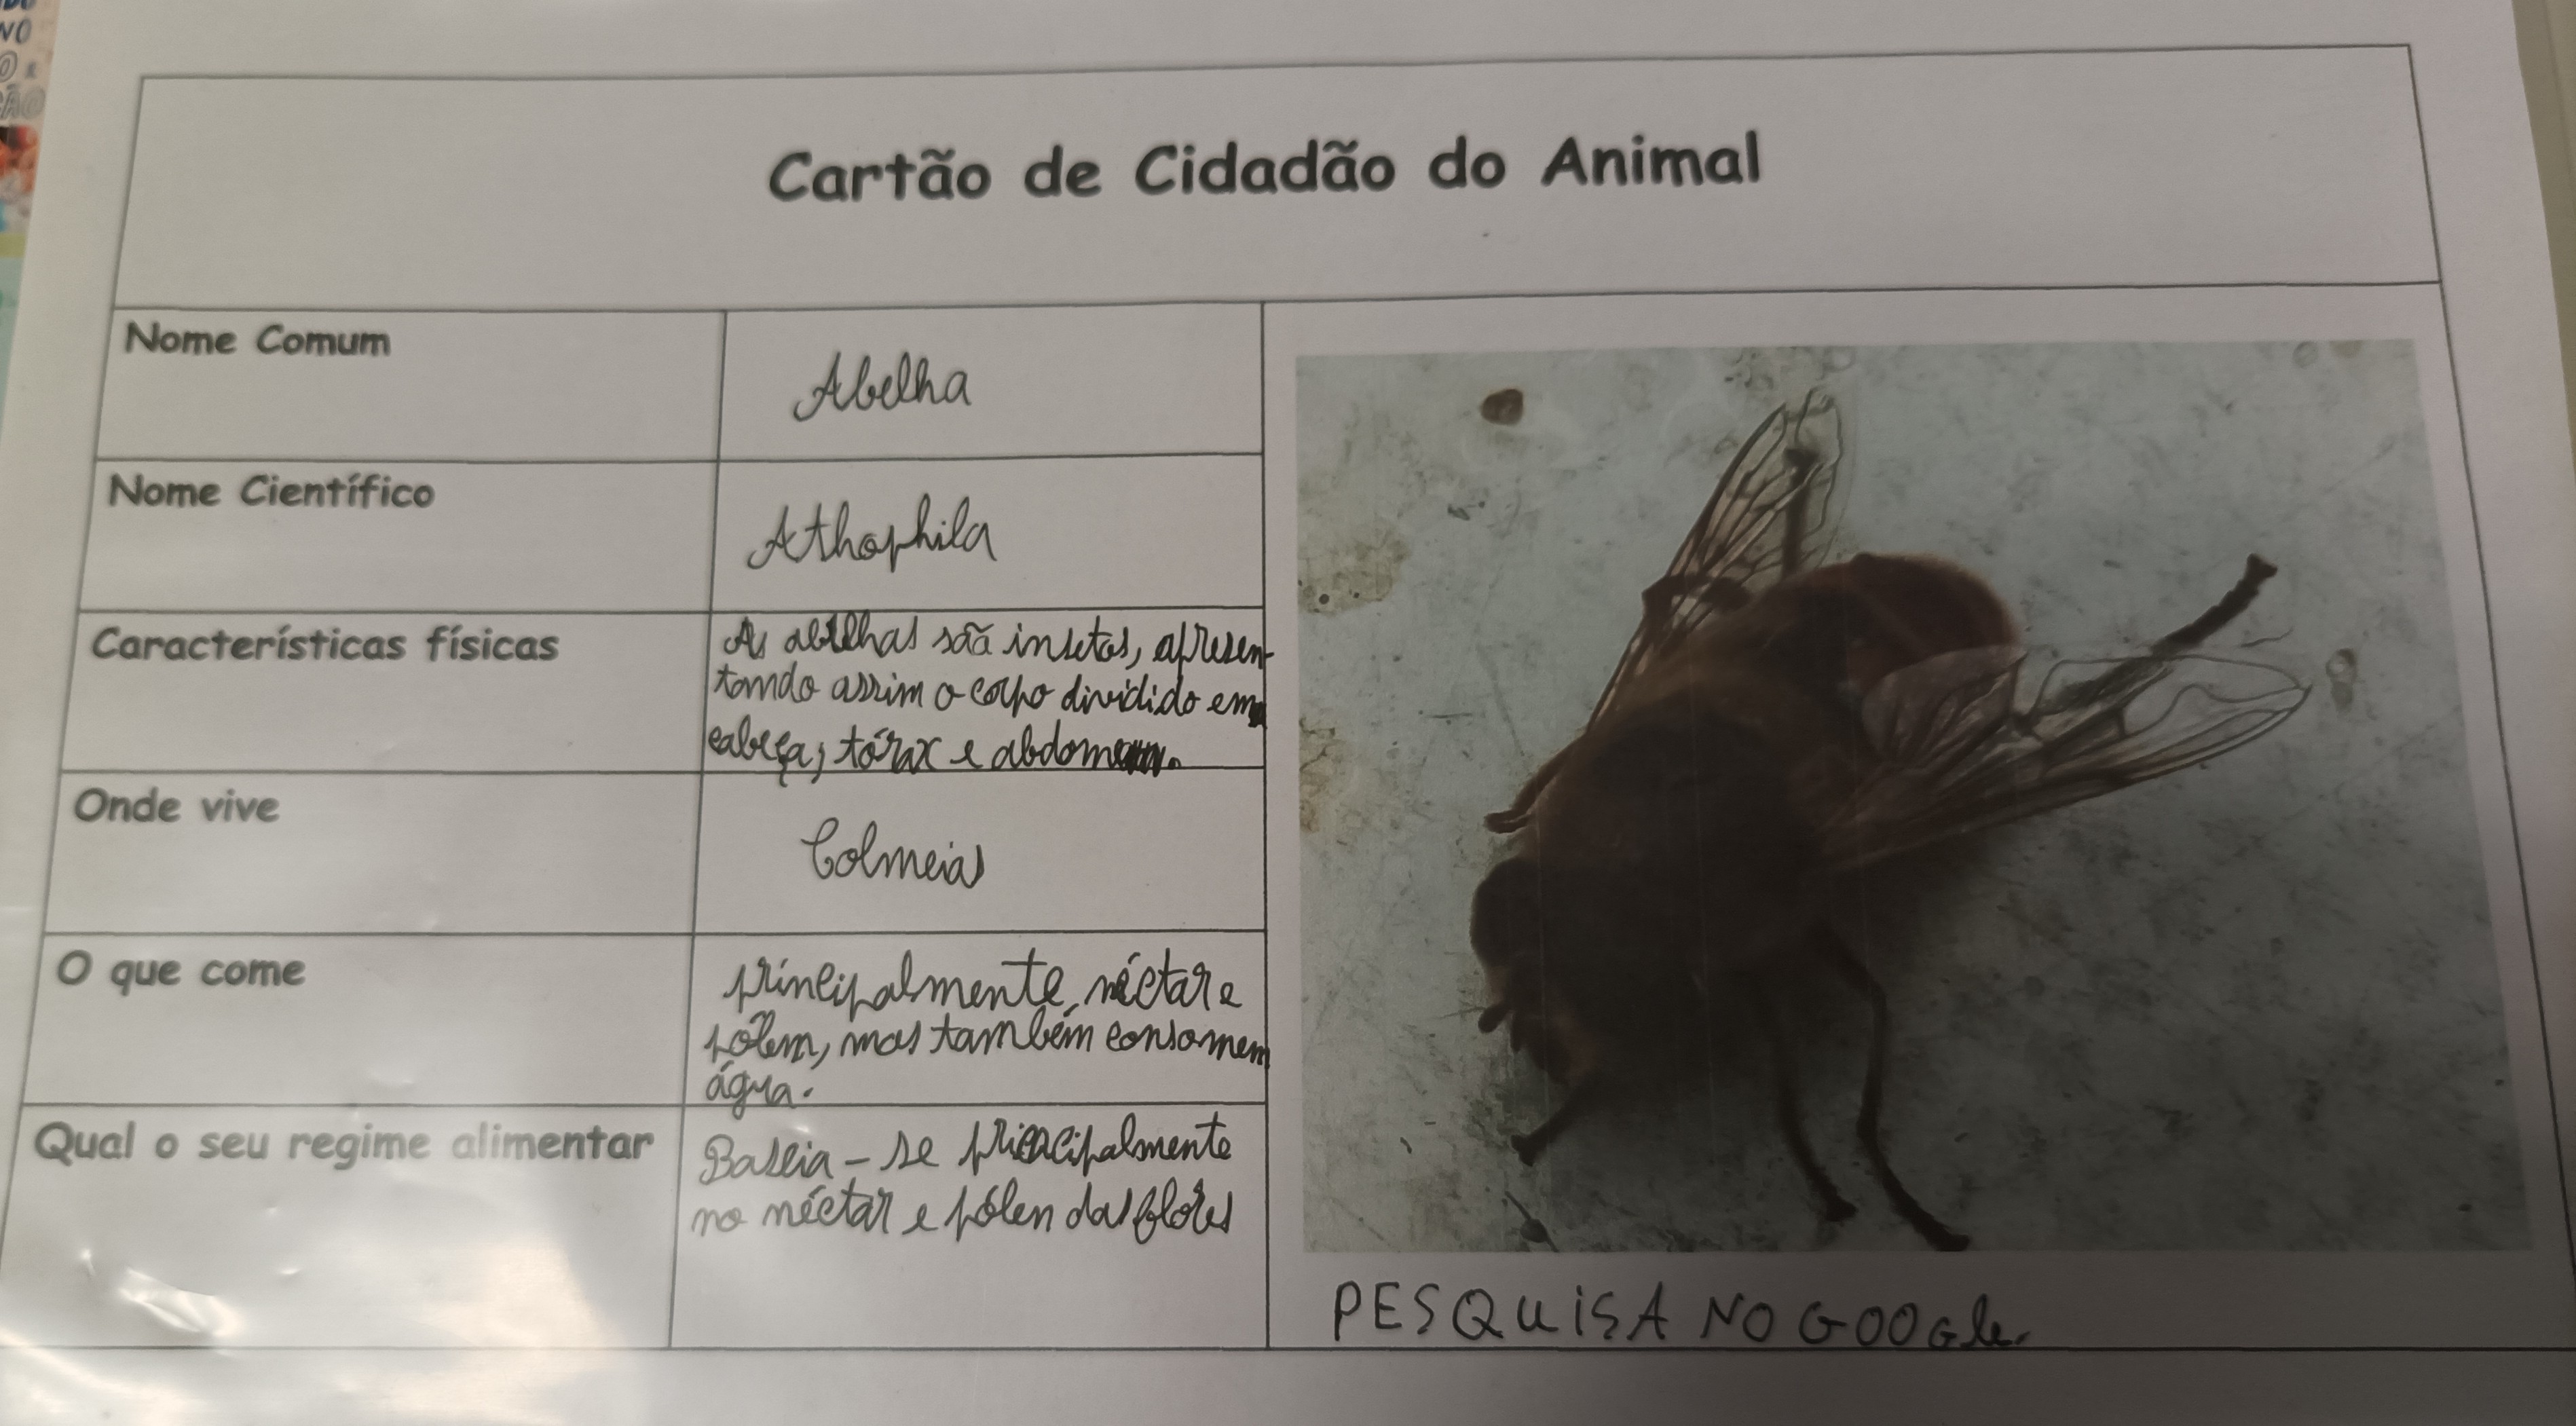 NO
ÃO
Cartão de Cidadão do Animal
Nome Comum
Abelha
Nome Científico
Athophila
Características físicas
As abelhas são insetos, apresen-
tando assim o corpo dividido em
cabeça, tórax e abdomem.
Onde vive
Colmeias
O que come
principalmente néctar e
pólem, mas também consomem
água.
Qual o seu regime alimentar
Baseia-se principalmente
no néctar e pólen das flores
PESQUISA NO GOOGle.